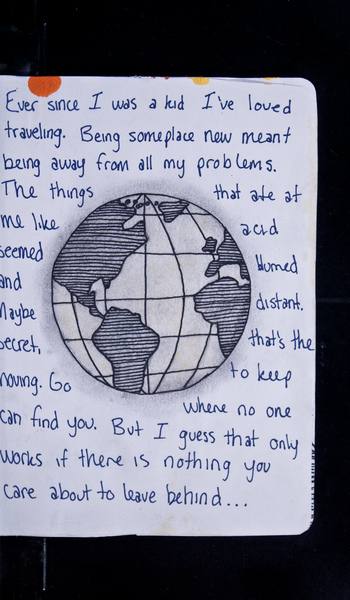 Ever since I was a kid I've loved
traveling. Being someplace new meant
being away from all my problems.
The things that ate at
me like acid
seemed blurred
and distant.
Maybe that's the
secret, to keep
moving. Go where no one
can find you. But I guess that only
works if there is nothing you
care about to leave behind...